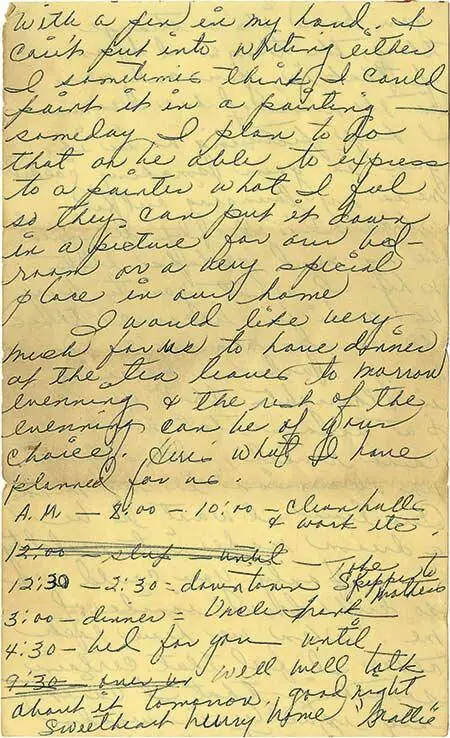 With a pen in my hand. I
can't put into writing either
I sometimes think I could
paint it in a painting —
someday I plan to do
that or be able to express
to a painter what I feel
so they can put it down
in a picture for our bed-
room or a very special
place in our home
I would like very
much for us to have dinner
at the tea leaves to morrow
evenning & the rest of the
evenning can be of your
choice. Here's what I have
planned for us.
A.M — 8:00 — 10:00 — Clean halls
& work etc.
12:00 — sleep — until —
12:30 — 2:30 = downtown — Take Skipper to Mothers
3:00 — dinner = Uncle Frank
4:30 — bed for you until
9:30 — over us well well talk
about it tomorrow. good night
Sweetheart